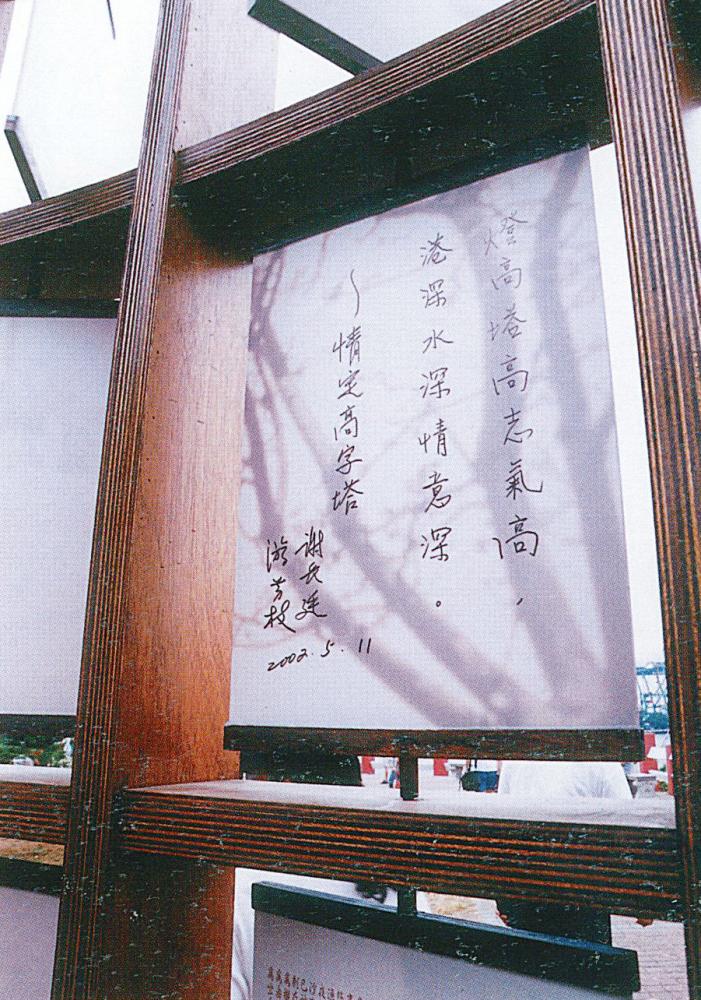 燈高塔高志氣高，
港深水深情意深。
～情定高字塔
謝長廷
游芳枝
2002.5.11